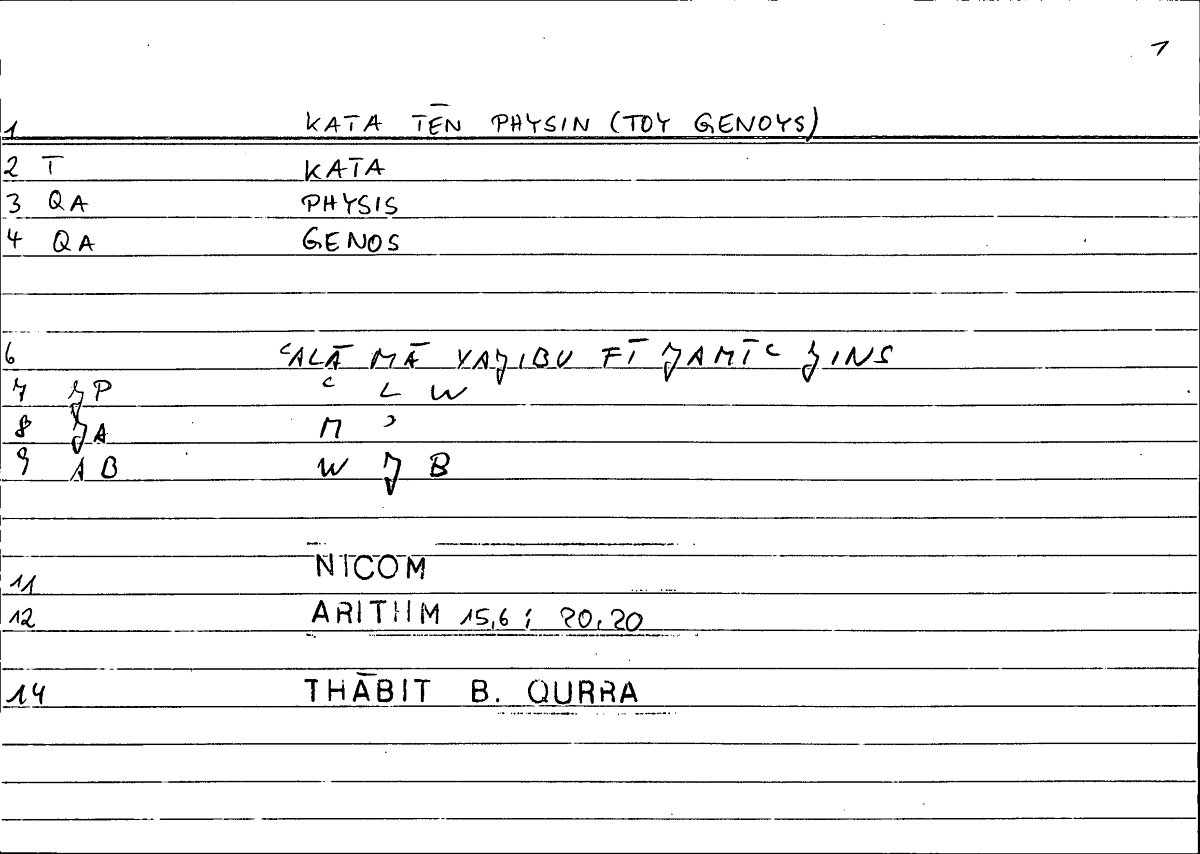 1
1 KATA TĒN PHYSIN (TOY GENOYS)
2 T KATA
3 QA PHYSIS
4 QA GENOS
6 ʿALĀ MĀ YAǦIBU FĪ ǦAMĪʿ ǦINS
7 ǦP ʿ L W
8 ǦA M ʾ
9 AB W Ǧ B
11 NICOM
12 ARITHM 15,6; 20,20
14 THĀBIT B. QURRA